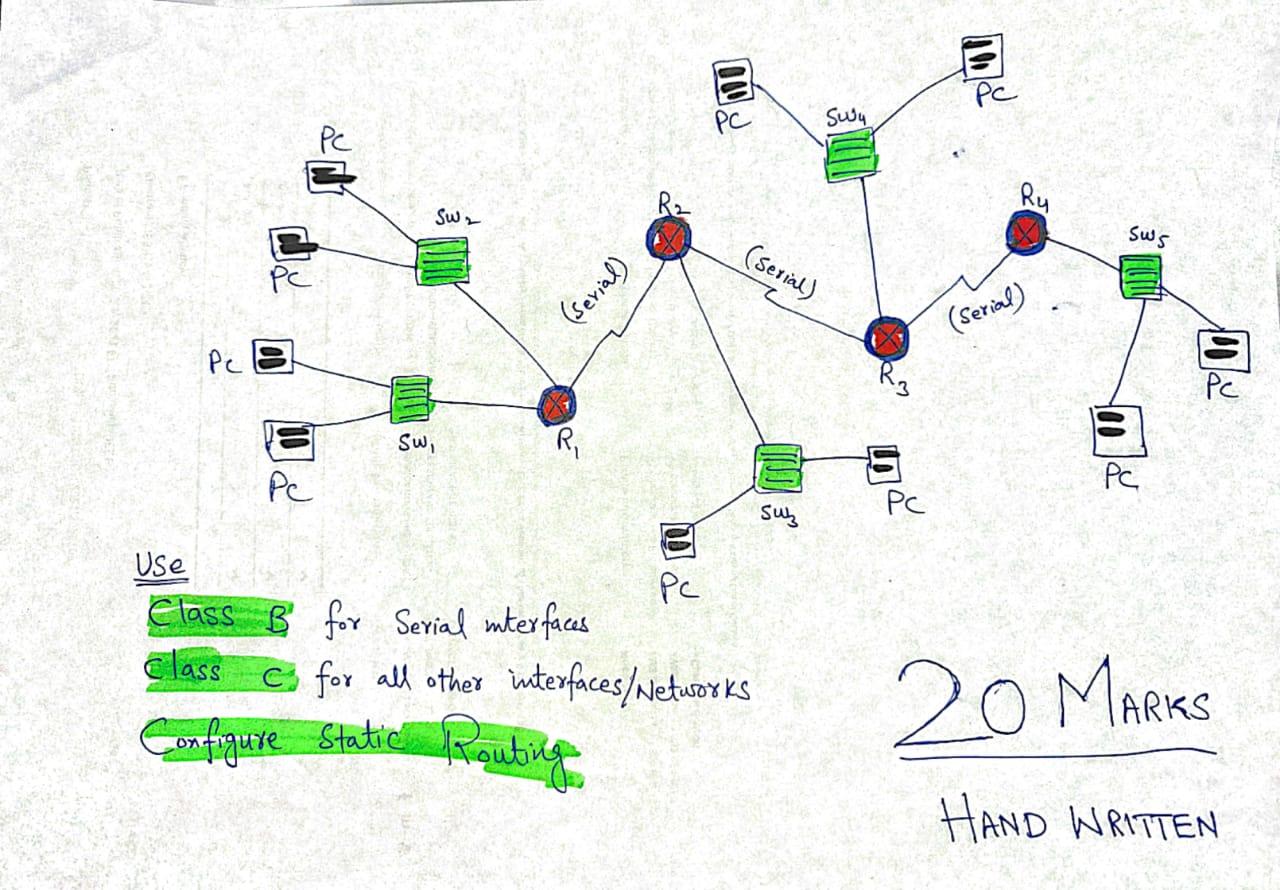 PC
PC
SW4
PC
PC
SW2
PC
R2
R4
SW5
(Serial)
(Serial)
(Serial)
PC
R3
PC
SW1
R1
PC
PC
PC
SW3
PC
PC
Use
Class B for Serial interfaces
Class C for all other interfaces/Networks
Configure Static Routing
20 MARKS
HAND WRITTEN